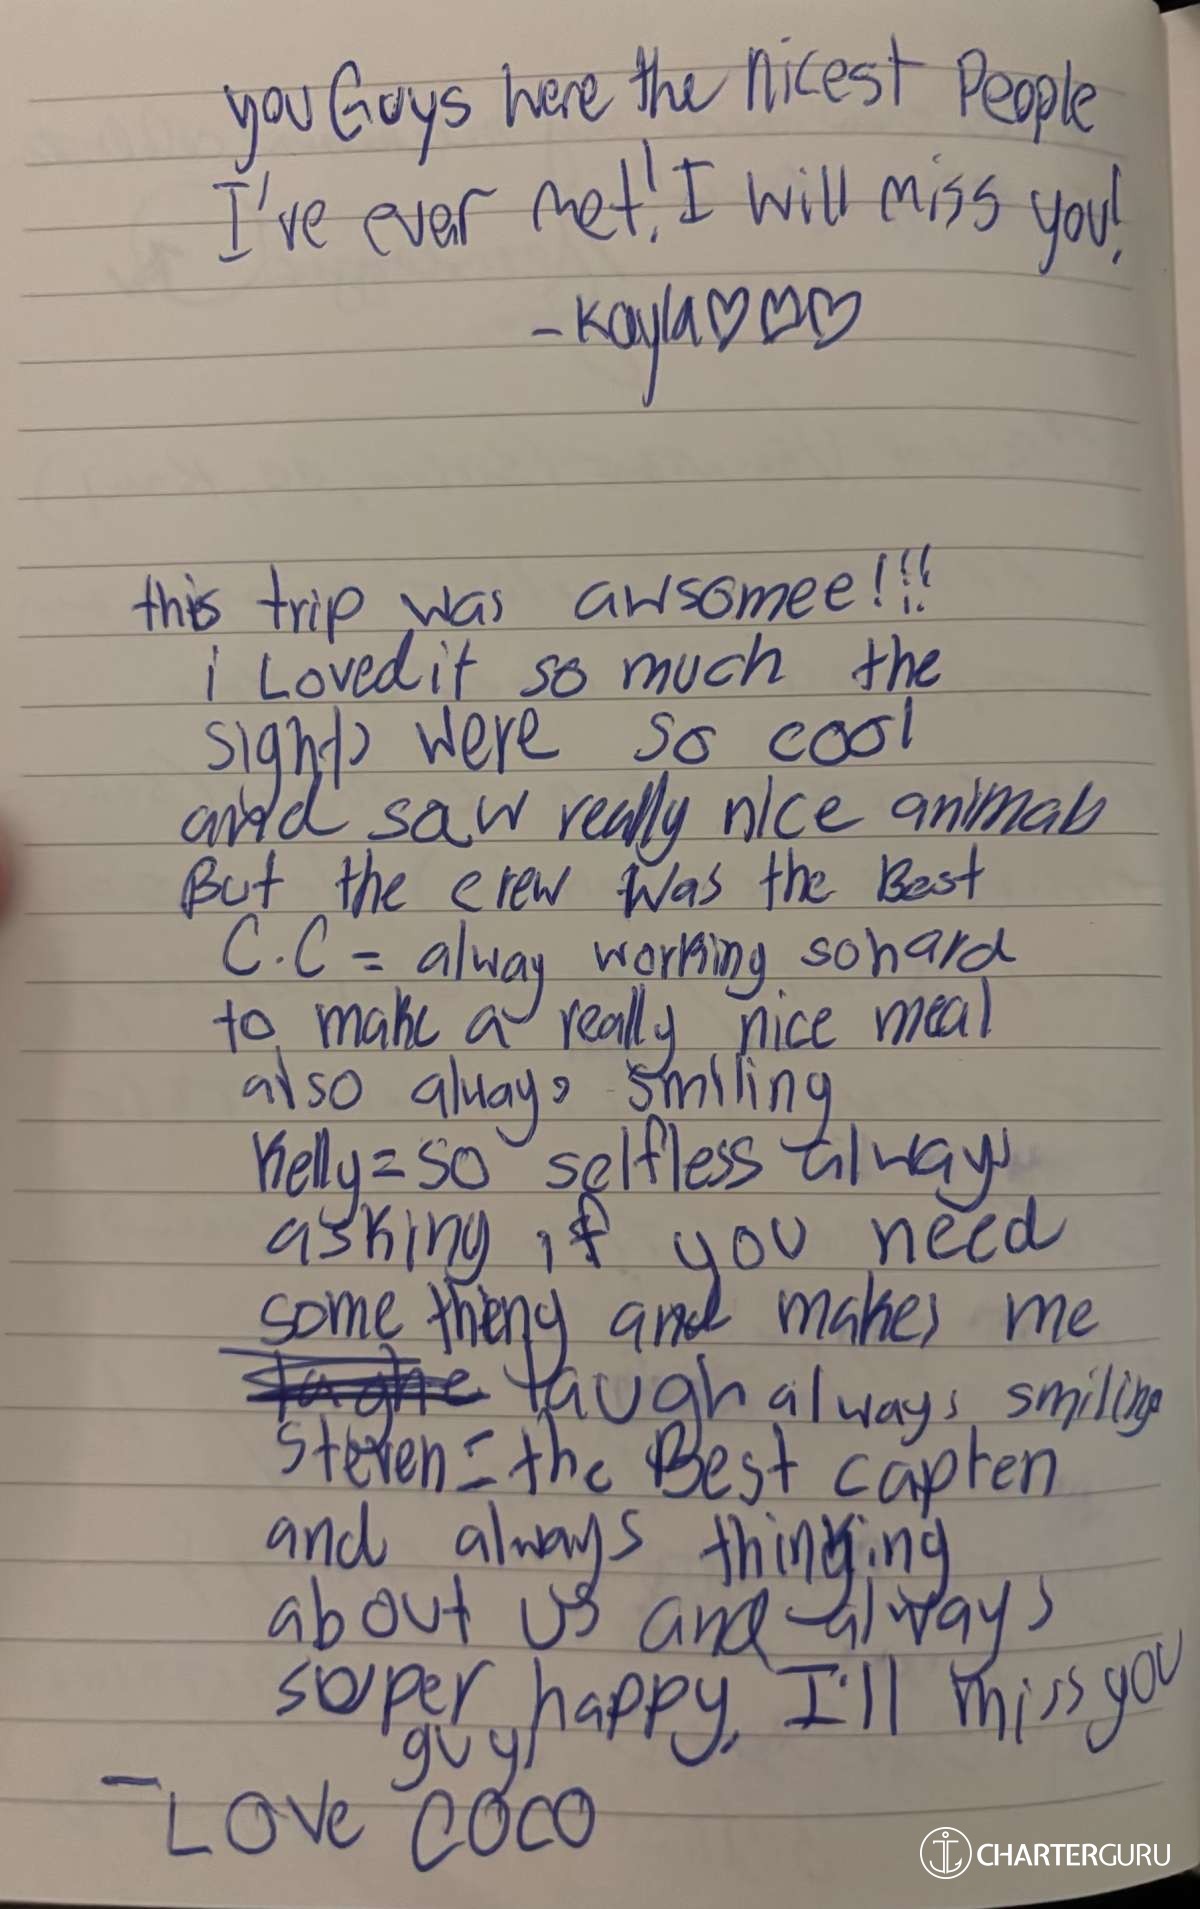 you Guys here the nicest People
I've ever met! I will miss you!
-Kayla♡♡♡
this trip was awsomee!!!
i Loved it so much the
sights were so cool
and saw really nice animals
But the crew was the Best
C.C = alway working so hard
to make a really nice meal
also always smiling
Kelly = so selfless always
asking if you need
some thing and makes me
laugh always smiling
Steven = the Best capten
and always thinking
about us and always
super happy, I'll miss you
guys
- Love COCO
CHARTERGURU